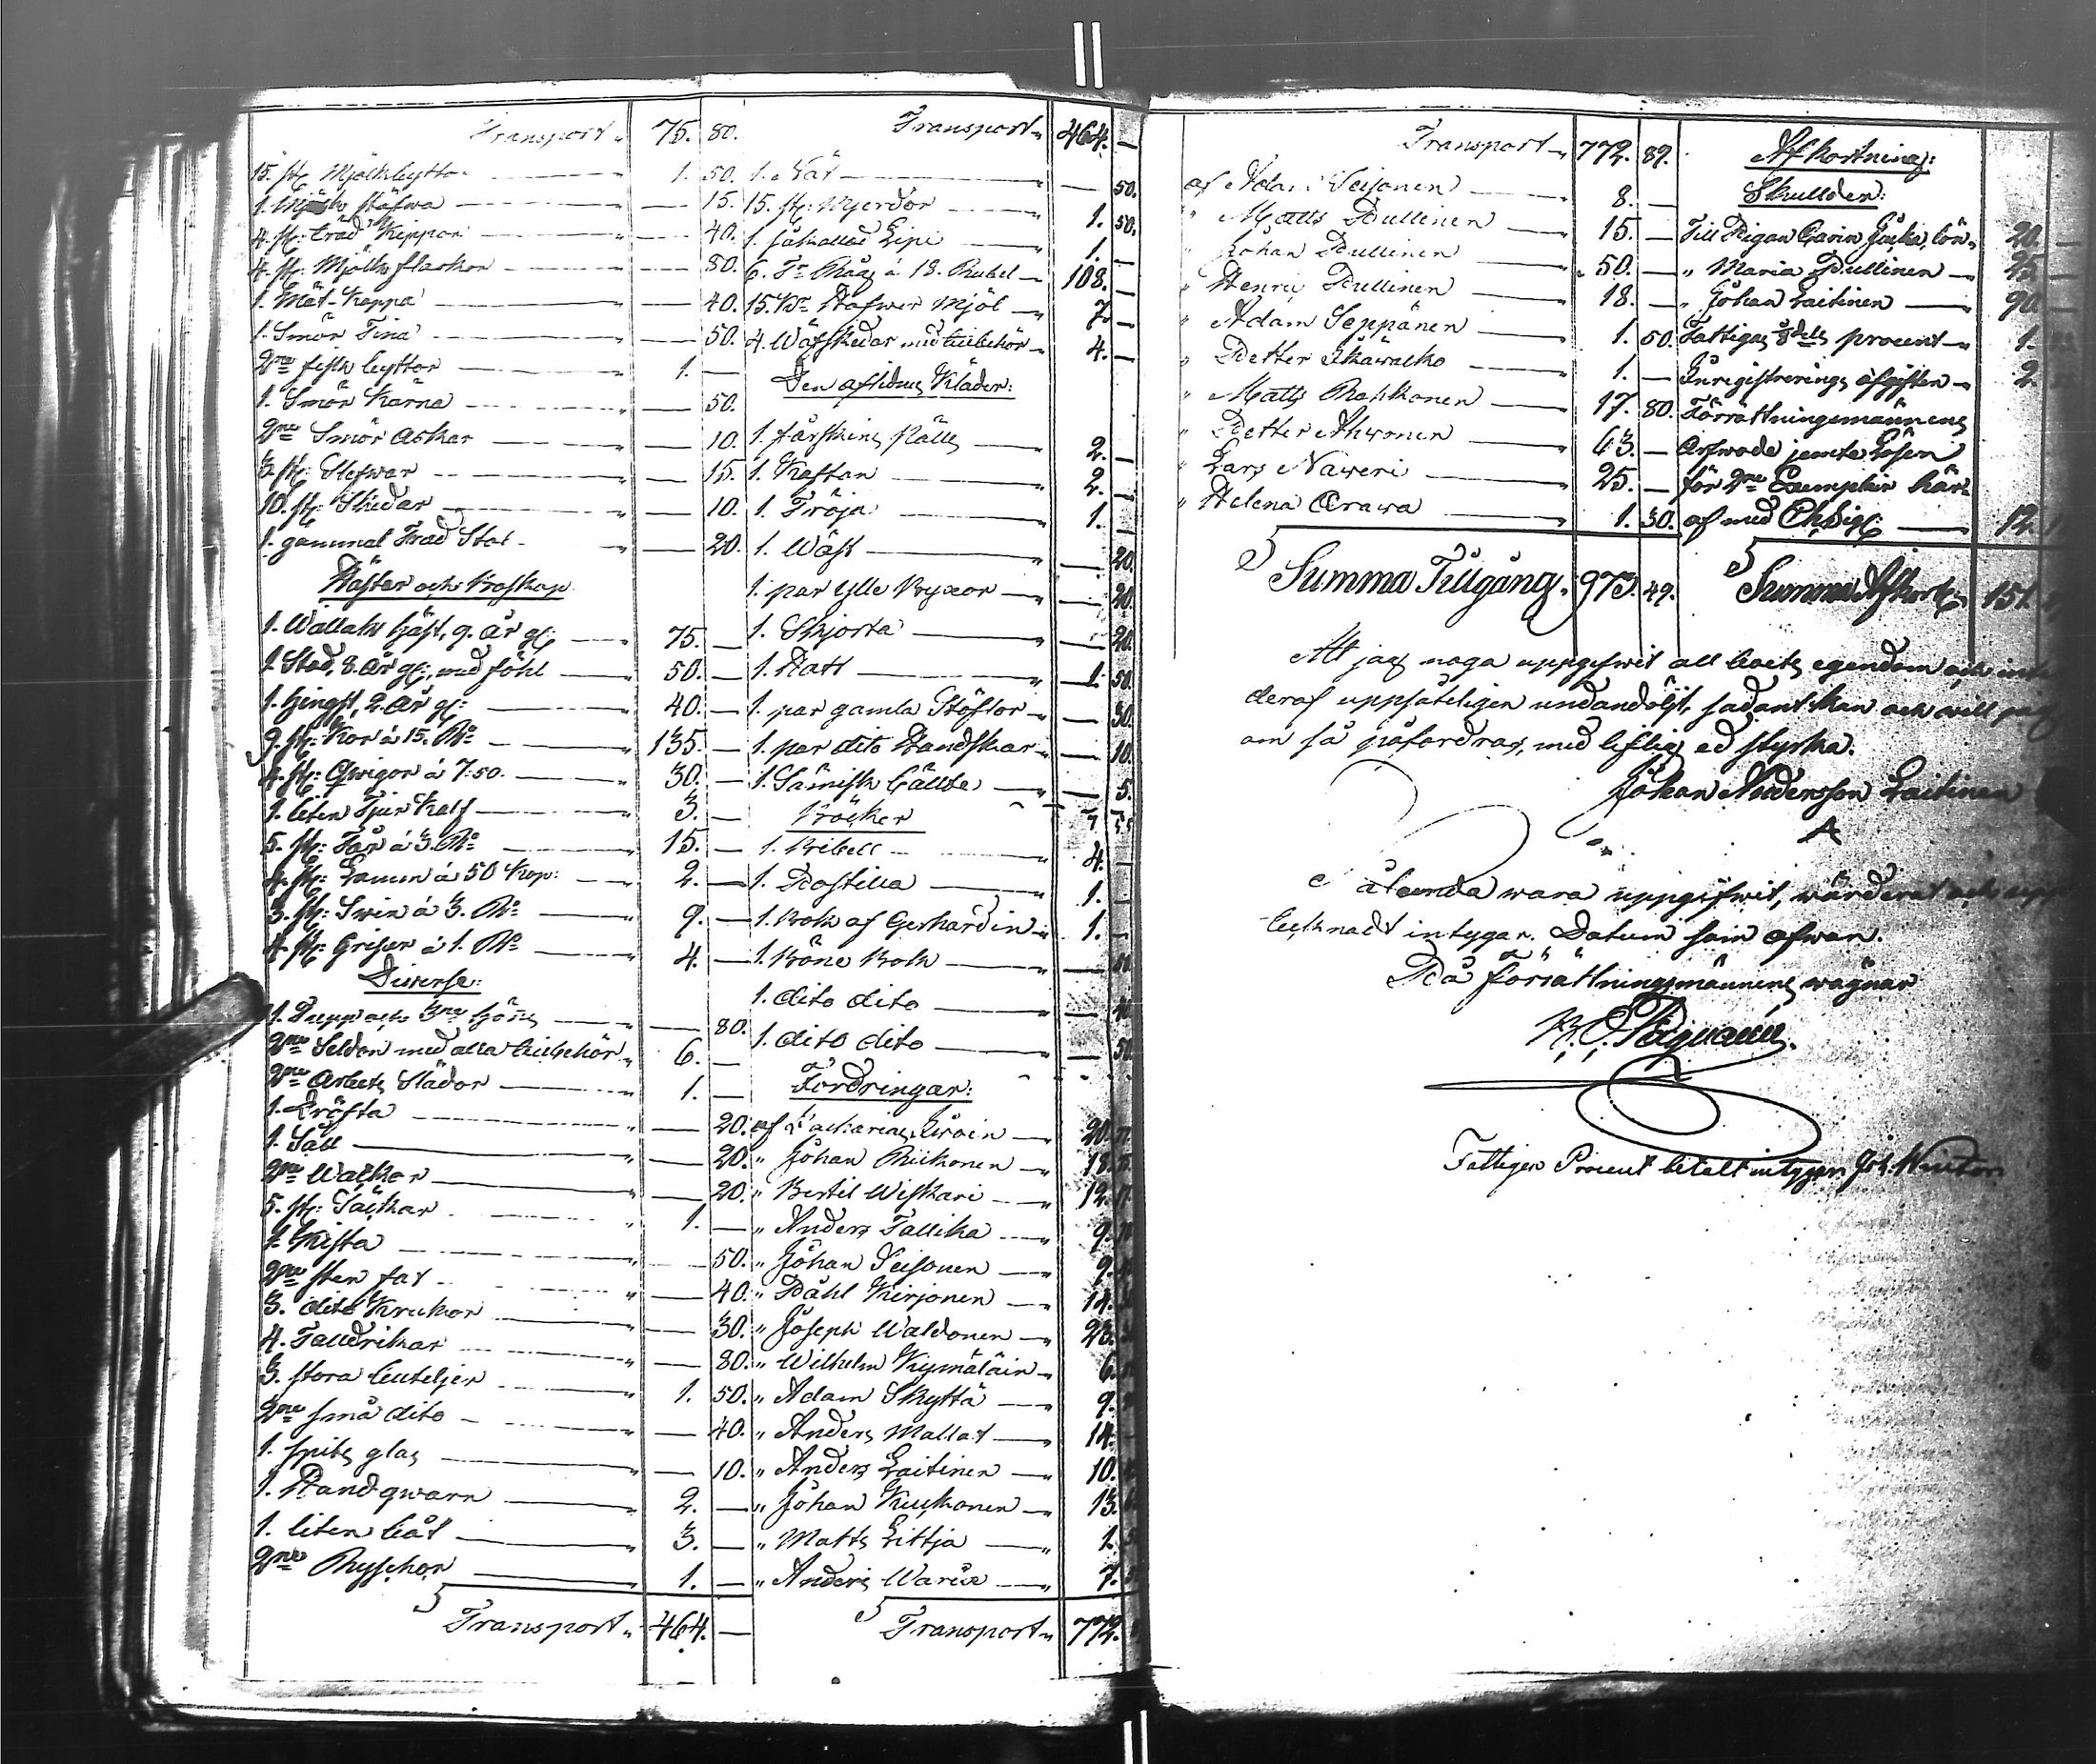 Transport „ 75. 80.
15. st: Mjölkbyttor „ 1. 50.
1. Mjölk stäfwa „ — 15.
4. st: träd Kippor „ — 40.
4. st: Mjölks flaskor „ — 80.
1. Måt-Kappa „ — 40.
1. Smör Tina „ — 50.
2ne fisk byttor „ 1. —
1. Smör Kärna „ — 50.
2ne Smör Askar „ — 10.
3. st: Slefwar „ — 15.
10. st: Skedar „ — 10.
1. gammal Träd Stol „ — 20.
Häster och Boskap
1. Wallak häst, 9. år gl: „ 75. —
1. Stod, 8. år gl:, med föhl „ 50. —
1. hingst, 2. år gl: „ 40. —
9. st: Kor á 15. Ro „ 135. —
4. st: Qwigor á 7:50. „ 30. —
1. liten Tjur Kalf „ 3. —
5. st: Får á 3. Ro „ 15. —
4. st: Lamm á 50 Kop: „ 2. —
3. st: Swin á 3. Ro „ 9. —
4. st: Grisar á 1. Ro „ 4. —
Diverse:
1. Tupp och 3ne höns „ — 80.
2ne Seldon med alla tillbehör „ 6. —
2ne Arbets Slädor „ 1. —
1. Dröfta „ — 20.
1. Såll „ — 20.
2ne Walkor „ — 20.
5. st: Säckar „ 1. —
1. Kista „ — 50.
2ne sten fat „ — 40.
3. dito Krukor „ — 30.
4. Talldrikar „ — 80.
3. stora buteljer „ 1. 50.
2ne små dito „ — 40.
1. spits glas „ — 10.
1. Handqwarn „ 2. —
1. liten båt „ 3. —
2ne Ryssjkor „ 1. —
Transport „ 464. —
Transport „ 464. —
1. Nät „ — 50.
15. st: Mjerdor „ 1. 50.
1. såkallad Lipi „ 1. —
6. Tr Råg á 18. Rubel „ 108. —
15. Hafwer Mjöl „ 7. —
4. Wäfskedar med tillbehör „ 4. —
Den aflidnes Kläder:
1. fårskins Päls „ 2. —
1. Kaftan „ 2. —
1. Tröja „ 1. —
1. Wäst „ — 20.
1. par ylle Byxor „ — 20.
1. Skjorta „ — 20.
1. Hatt „ 1. 50.
1. par gamla Stöflor „ — 30.
1. par dito Handskar „ — 10.
1. Sämisk bällte „ — 5.
Böcker
1. Bibell „ 4. —
1. Postilla „ 1. —
1. Bok af Gerhardin „ 1. —
1. Böne Bok „ —
1. dito dito „ — 40
1. dito dito „ — 50
Fordringar:
af Zacharias „ 20.
„ Johan Riikonen „ 18.
„ Bertil Wiskari „ 12.
„ Anders Tallika „ 9.
„ Johan Seisonen „ 9.
„ Påhl Kirjonen „ 14.
„ Joseph Waldonen „ 23.
„ Wilhelm Kymäläin „ 6.
„ Adam Skyttä „ 9.
„ Anders Mallat „ 14.
„ Anders Laitinen „ 10.
„ Johan Kuikonen „ 13.
„ Matts Littja „ 1.
„ Anders Waris „ 7.
Transport „ 772.
Transport „ 772. 89.
af Adam Seisonen „ 8. —
„ Matts Pullinen „ 15. —
„ Johan Pullinen „ 50. —
„ Henric Pullinen „ 18. —
„ Adam Seppänen „ 1. 50.
„ Petter Ikäwalko „ 1. —
„ Matts Rahkonen „ 17. 80.
„ Petter Ahwonen „ 63. —
„ Lars Naweri „ 25. —
„ Helena Orawa „ 1. 30.
Summa Tillgång „ 973. 49.
Afkortning:
Skullder:
Till Pigan Carin lön „ 20. —
„ Maria Pullinen „ 25 —
„ Johan Laitinen „ 90. —
Fattigas 1/8 dels procent „ 1.
Inregistrerings afgiften „ 2.
Förrättningsmännens
Arfwode jemte Lösen
för 2ne Exemplar här-
af med „ 12.
Summa Afkort: „ 151.
Att jag noga uppgifwit all boets egendom och
deraf uppsåteligen undandöljt, sådant kan och will
om så påfordras, med liflig ed styrka.
Johan Andersson Laitinen
Sålunda wara uppgifwit, wärderat och
tecknadt intygar. Datum som ofwan.
På förrättningsmännens wägnar
Fattigas Procent betalt intygar Joh.